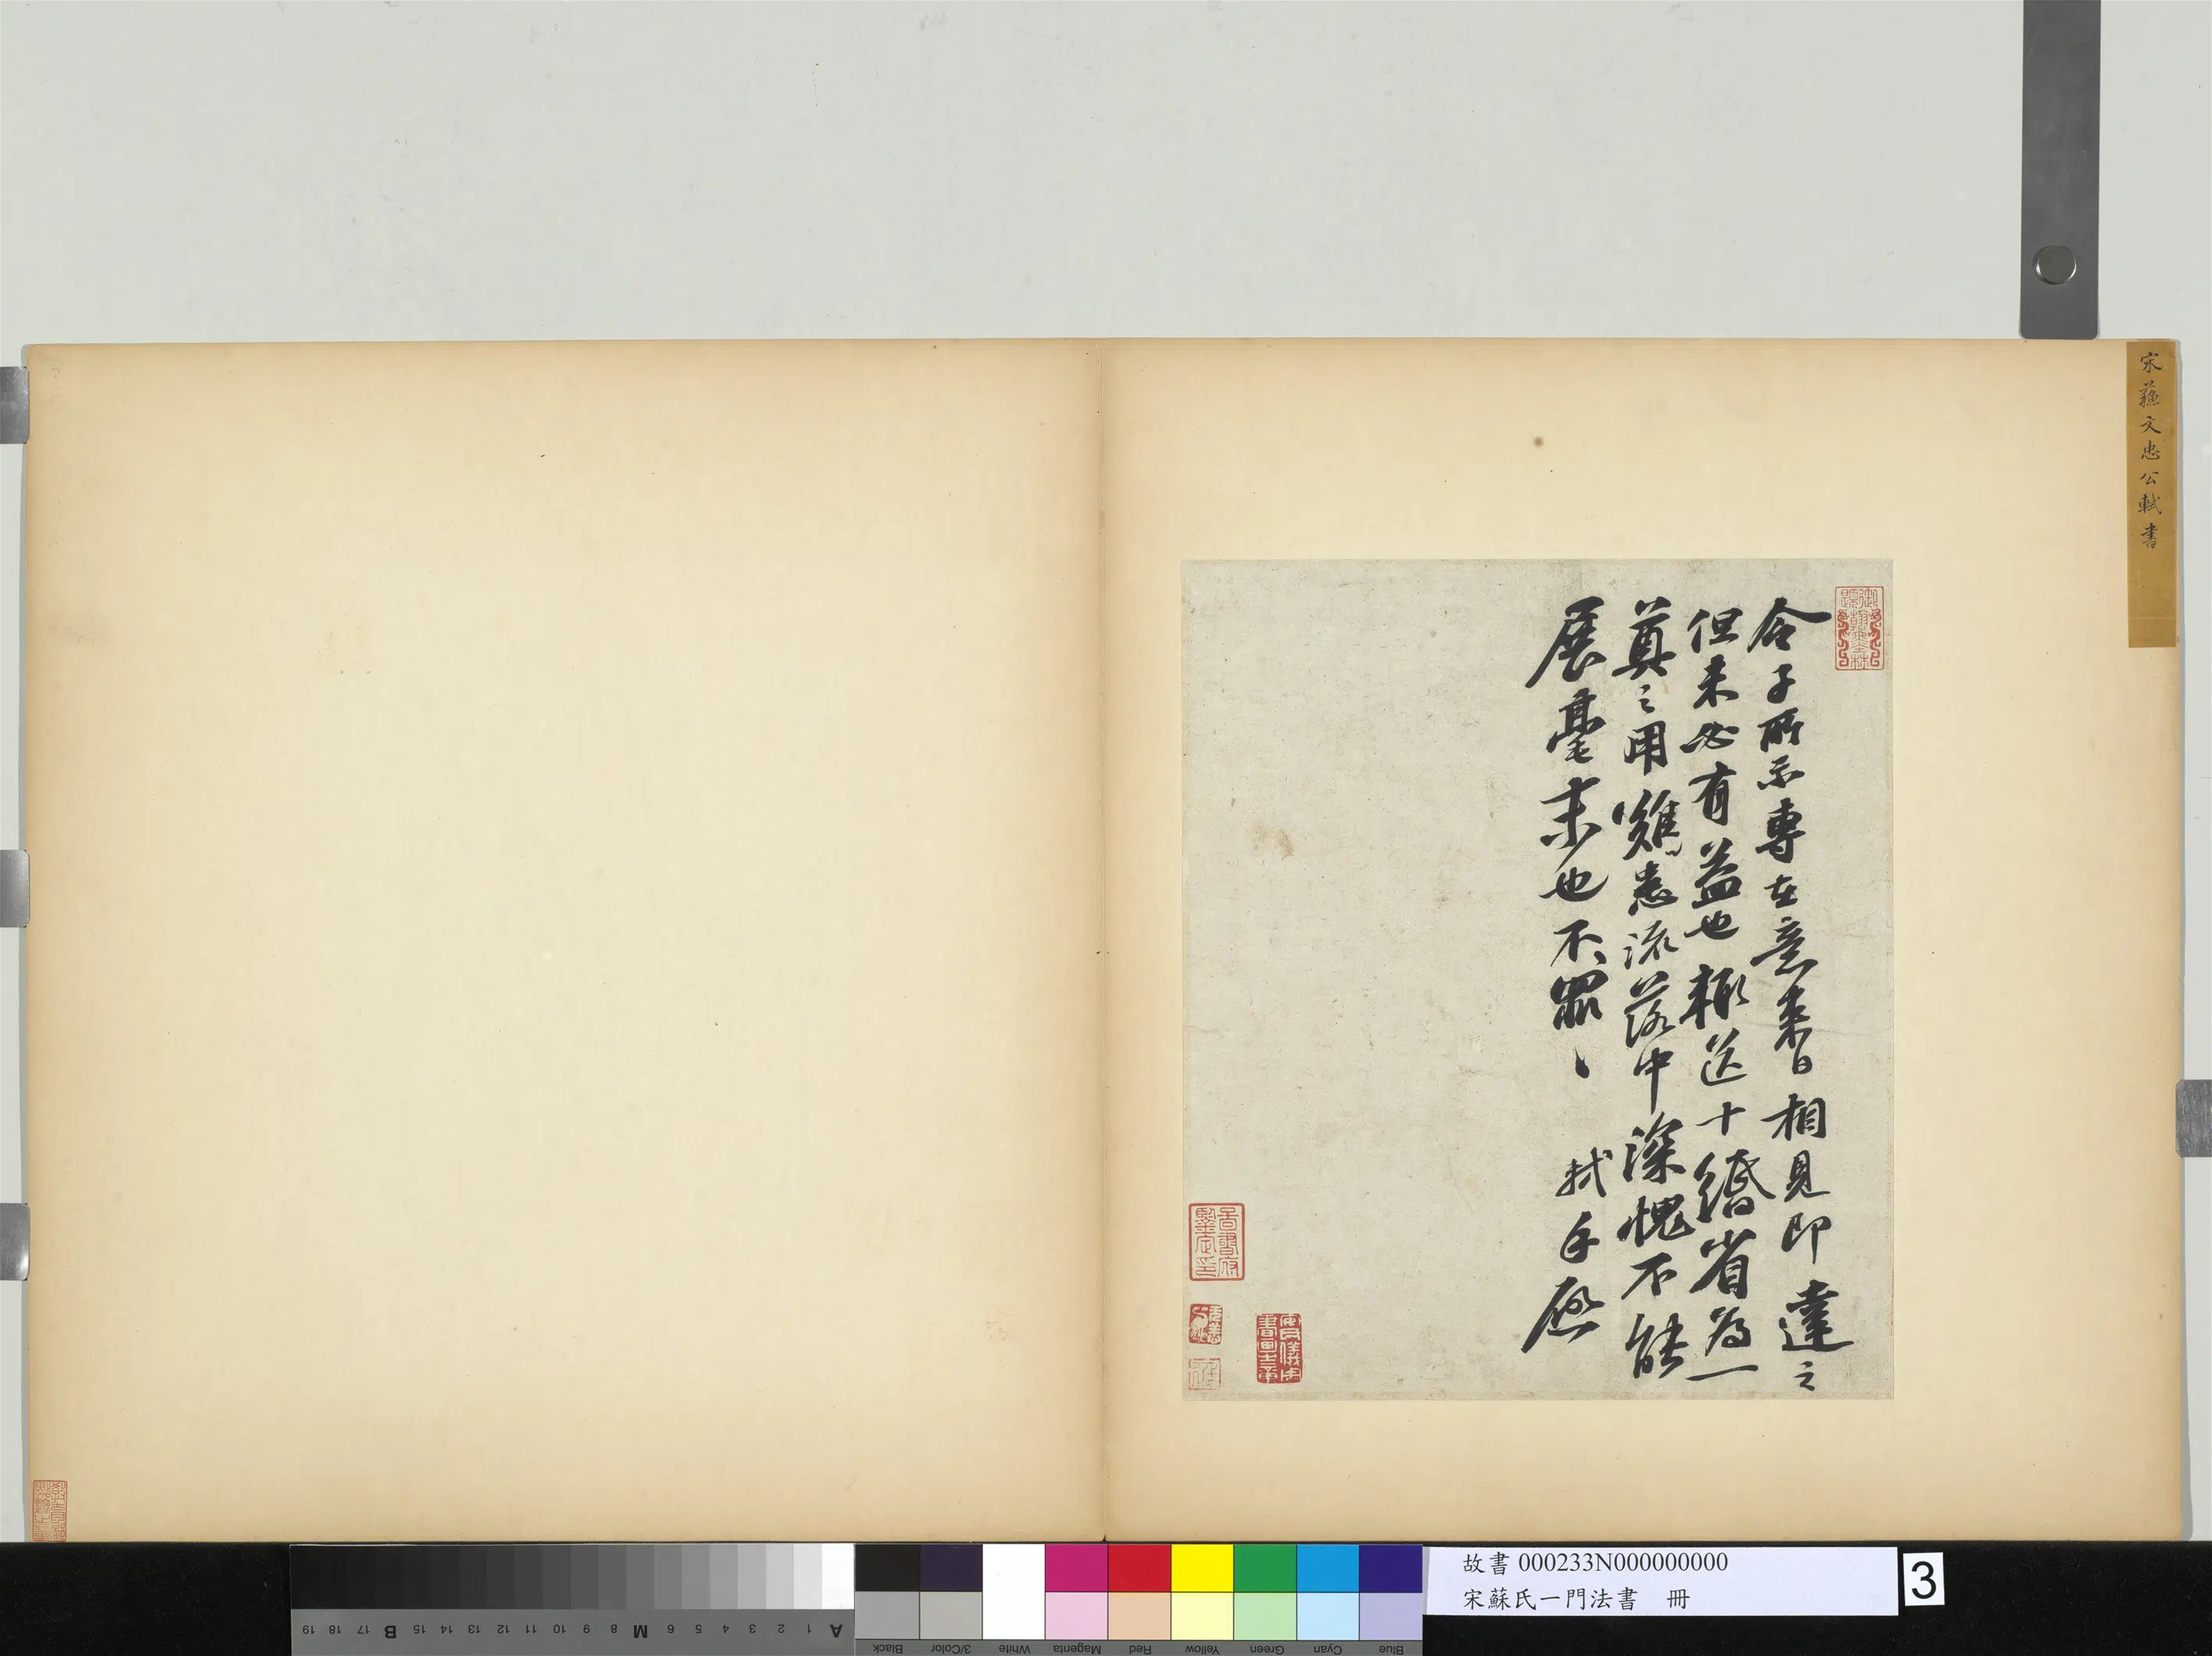 宋蘇文忠公軾書
令子所示專在意來日相見即達之
但未必有益也輒送十緡省為一
奠之用雖患流落中深愧不能
展毫末也不罪〻
軾手啟
故書 000233N000000000
宋蘇氏一門法書 冊
3
A 1 2 3 4 5 6 M 8 9 10 11 12 13 14 15 B 17 18 19
Blue Cyan Green Yellow Red Magenta White 3/Color Black